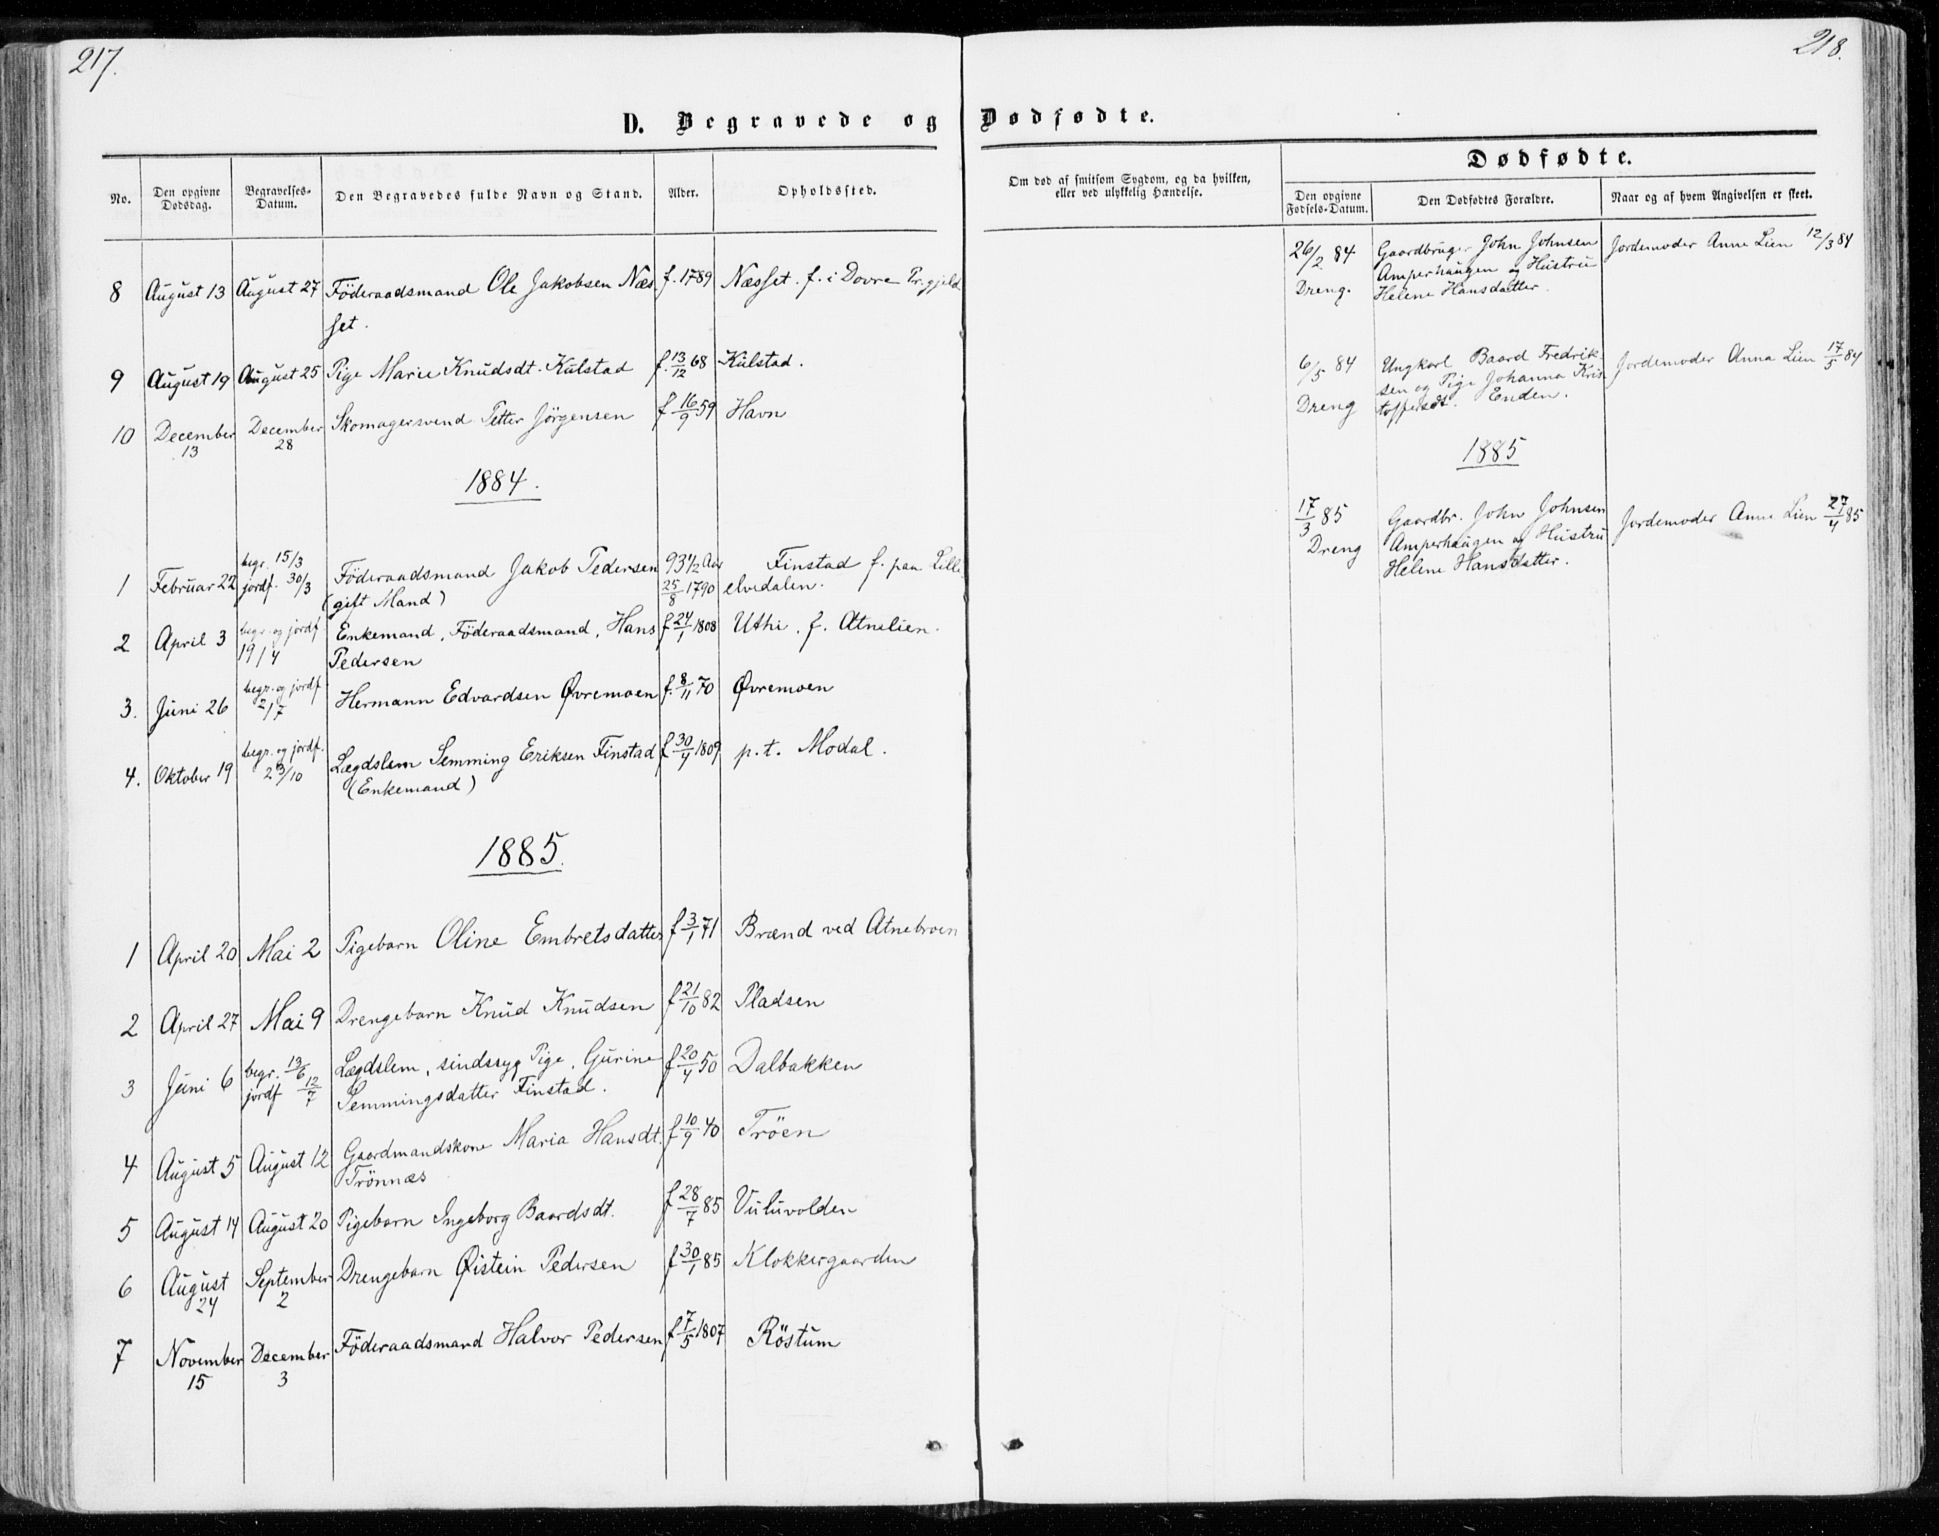 217.
218.
D. Begravede og Dødfødte.
No.
Den opgivne Dødsdag.
Begravelses-Datum.
Den Begravedes fulde Navn og Stand.
Alder.
Opholdssted.
Om død af smitsom Sygdom, og da hvilken,
eller ved ulykkelig Hændelse.
Dødfødte.
Den opgivne Fødsels-Datum.
Den Dødfødtes Forældre.
Naar og af hvem Angivelsen er skeet.
8 August 13 August 27 Föderaadsmand Ole Jakobsen Næs f. 1789 Næsset. f. i Dovre Pr.gjeld
set.
9 August 19 August 25 Pige Marie Knudsdt. Kulstad f. 13/12 68 Kulstad.
10 December December Skomagersvend Petter Jörgensen f 16/9 59 Havn
13 28
1884.
begr. 15/3
1 Februar 22 jordf. 30/3 Föderaadsmand Jakob Pedersen 93 1/2 Aar Finstad f. paa Lille
(gift Mand) 25/8 1790 elvedalen.
2 April 3 begr. og jordf Enkemand, Föderaadsmand, Hans f 24/1 1808 Uthi. f. Atnelien.
19/4 Pedersen
3. Juni 26 begr. og jordf Hermann Edvardsen Øvremoen f. 8/11 70 Øvremoen
2/7
4. Oktober 19 begr. og jordf. Lægdslem Semming Eriksen Finstad f 30/4 1809 p.t. Modal.
23/10 (Enkemand)
1885.
1 April 20 Mai 2 Pigebarn Oline Embretsdatter f 3/1 71 Brænd ved Atnebroen
2 April 27 Mai 9 Drengebarn Knud Knudsen f 21/10 82 Pladsen
3 Juni 6 begr. 13/6 Lægdslem, sindssyg Pige, Gurine f 20/4 50 Dalbakken
jordf 12/7 Semmingsdatter Finstad.
4 August 5 August 12 Gaardmandskone Maria Hansdt. f 10/9 40 Tröen
Trönnæs
5 August 14 August 20 Pigebarn Ingeborg Baardsdt. f 28/7 85 Vuluvolden
6 August September Drengebarn Øistein Pedersen f 30/1 85 Klokkergaarden
24 2
7 November December Föderaadsmand Halvor Pedersen f 7/5 1807 Röstum
15 3
26/2 84 Gaardbruger John Johnsen Jordemoder Anne Lien 12/3 84
Amperhaugen og Hustru
Dreng. Helene Hansdatter.
6/5 84 Ungkarl Baard Fredrik Jordemoder Anna Lien 17/5 84
sen og Pige Johanna Kris
Dreng toffersdt. Enden.
1885
17/3 85 Gaardbr. John Johnsen Jordemoder Anne Lien 27/4 85
Dreng Amperhaugen og Hustru
Helene Hansdatter.